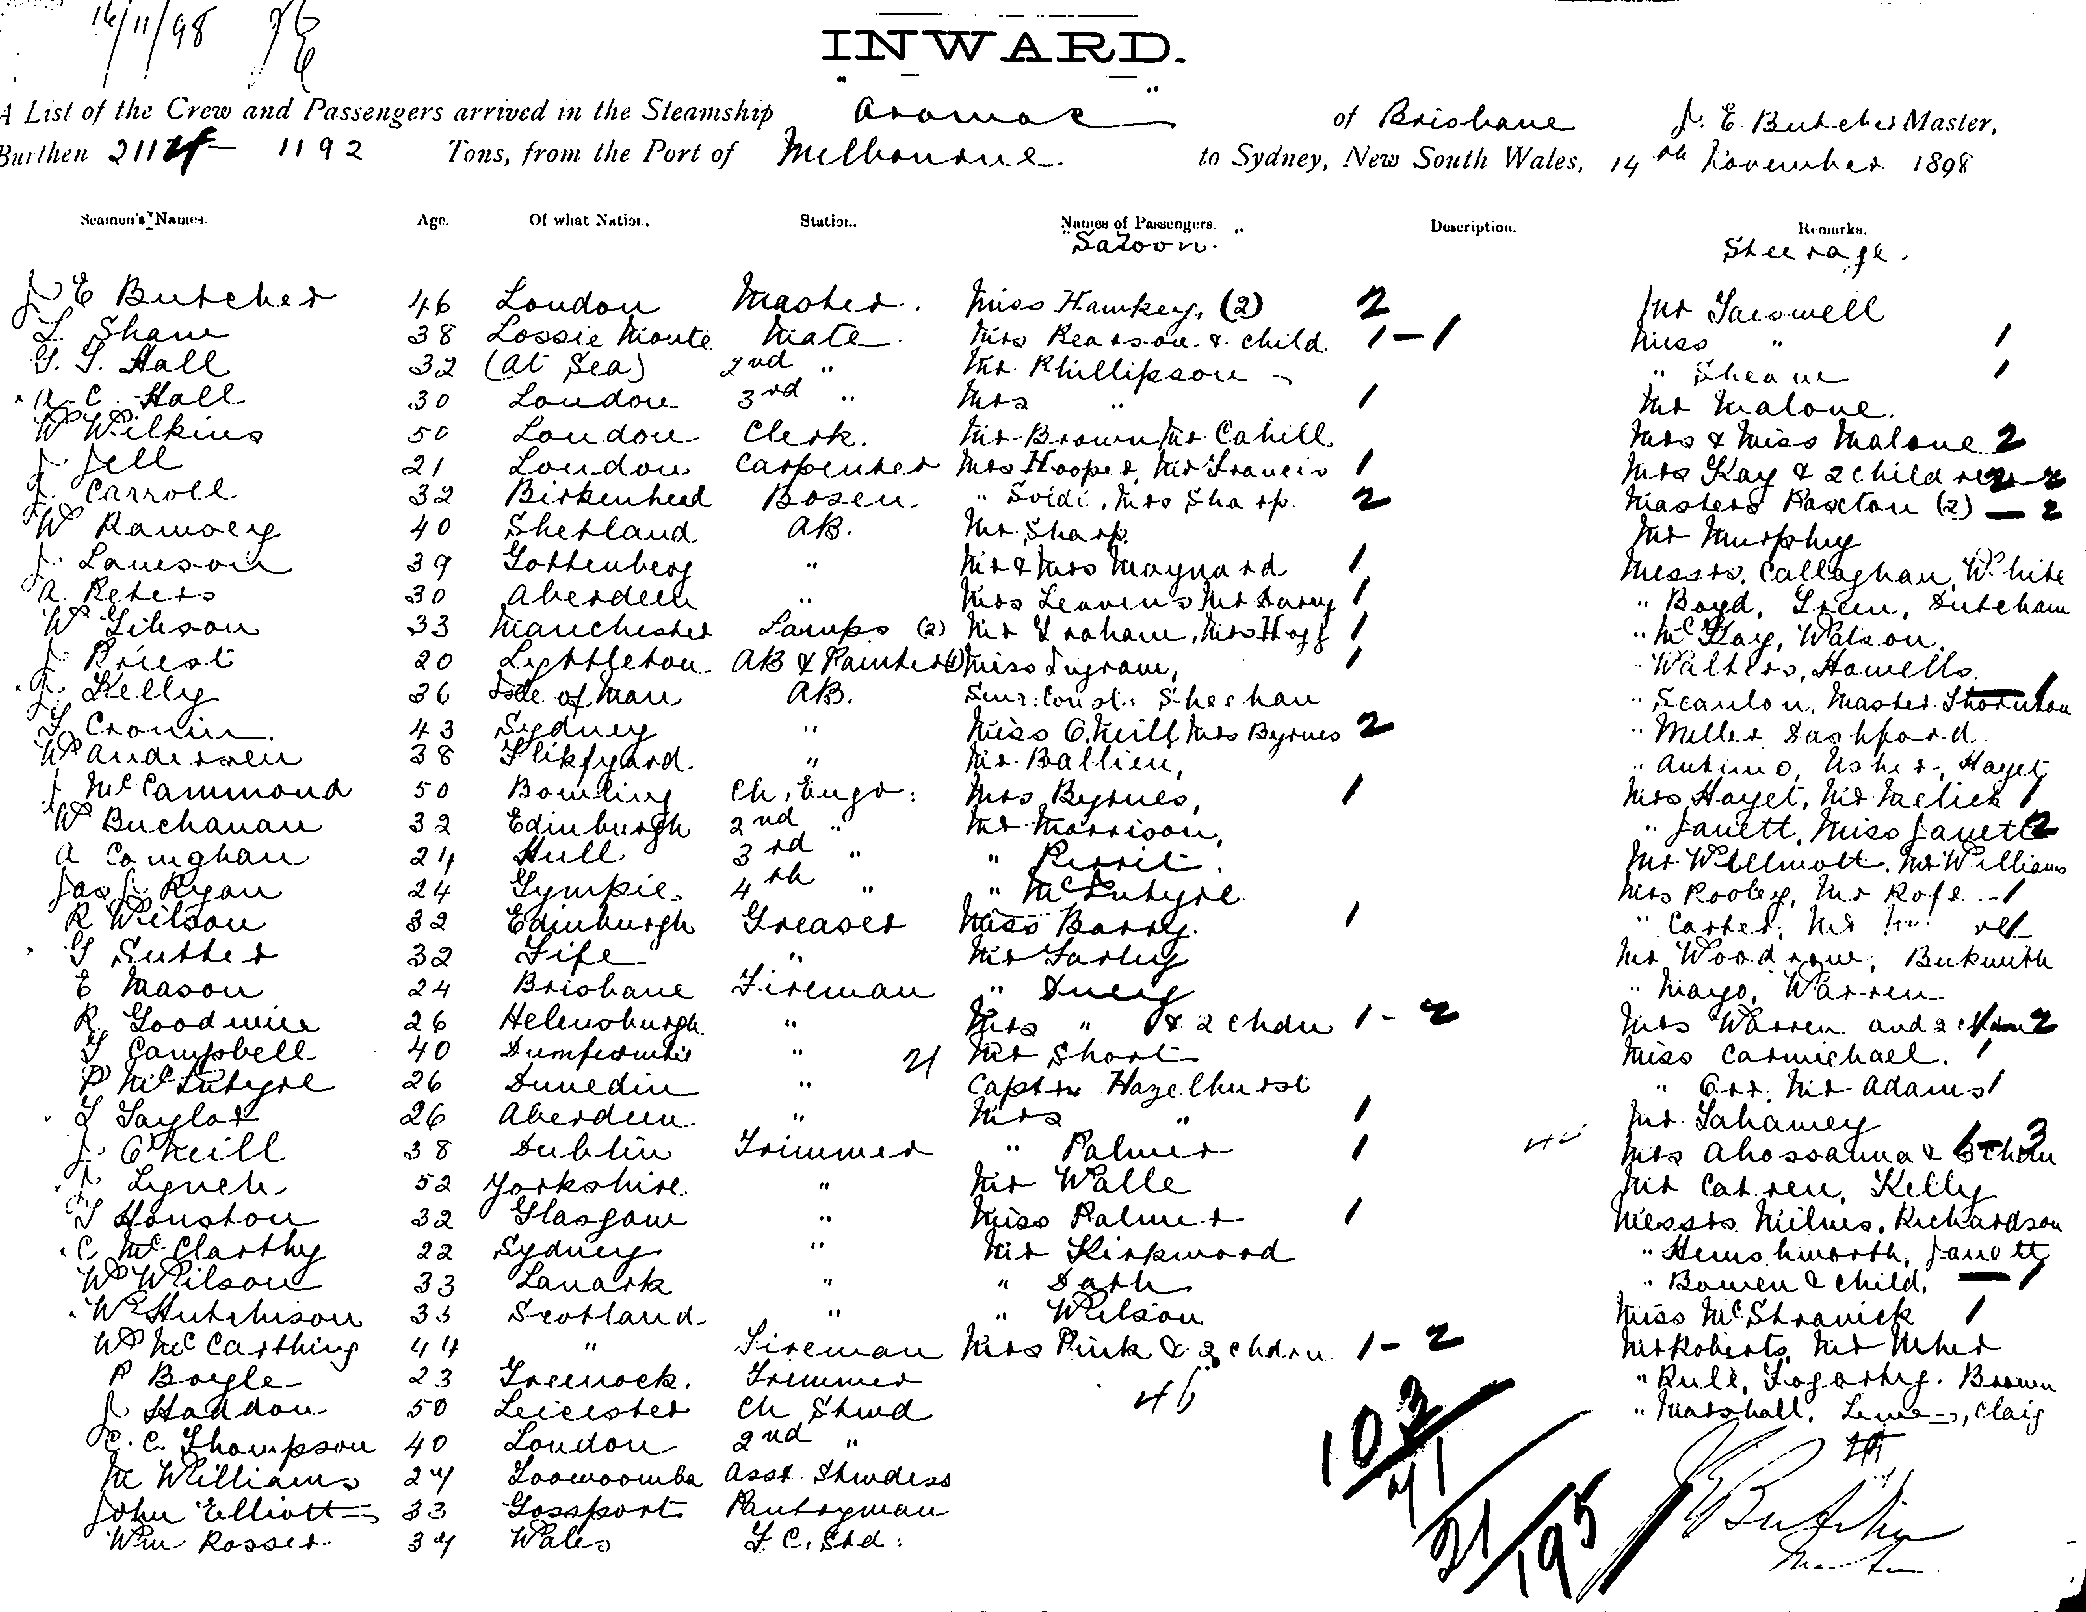 16/11/98
INWARD.
A List of the Crew and Passengers arrived in the Steamship "Aramac" of Brisbane J. E. Butcher Master,
Burthen 2114 1192 Tons, from the Port of Melbourne. to Sydney, New South Wales, 14th November 1898
Seamen's Names. Age. Of what Nation. Station. Names of Passengers. Description. Remarks.
"Saloon." Steerage.
J E Butcher 46 London Master. Miss Hawkey, (2) 2 Mr Tarswell
38 Lossie Mouth Mate. Mrs Pearson & child 1-1 Miss " 1
Hall 32 (At Sea) 2nd " Mr Phillipson " Sheane 1
A. C. Hall 30 London 3rd " Mrs " 1 Mr Malone.
W Wilkins 50 London Clerk. Mr Brown Mr Cahill Mrs & Miss Malone 2
J. Jell 21 London Carpenter Mrs Hooper, Mr Francis 1 Mrs Kay & 2 children 2
J. Carroll 32 Birkenhead Bosen. " Mrs Sharp. 2 Masters Paxton (2) — 2
W Ramsey 40 Shetland AB. Mr Sharp. Mr Murphy
J. 39 Gottenberg " Mr & Mrs Maynard 1 Messrs. Callaghan, White
A. Peters 30 Aberdeen " Mrs Leavens Mr 1 " Boyd,
W Gibson 33 Manchester Lamps (2) Mr Graham, Mrs 1 " McKay, Watson,
J Priest 20 Lyttleton AB & Painter Miss Ingram, 1 Walters, Howells
J. Kelly 36 Isle of Man AB. Senr. Const. Sheehan " Scanlon, Master Thornton 1
T Cronin. 43 Sydney " Miss O'Neill, Mrs Byrnes 2 " Miller
W Andersen 38 " Mr Ballien, " Antino, Usher, Hayet
J McCammond 50 Bowling Ch. Engr: Mrs Byrnes, 1 Mrs Hayet, Mr 1
W Buchanan 32 Edinburgh 2nd " Mr Morrison, " Janett, Miss Janett 2
A 24 Hull 3rd " " Perrit. Mr Willmott, Mr Williams
Jas J. Ryan 24 Gympie. 4th " " McIntyre Mrs Pooley, Mr Rofe 1
R Wilson 32 Edinburgh Greaser Miss Barry. 1 " Carter, Mr
Sutter 32 Fife " Mr Mr
E Mason 24 Brisbane Fireman " " Mayo, Warren
R. Goodwin 26 Helensburgh " Mrs " & 2 chdn 1-2 Mrs Warren and 2 chdn 2
T Campbell 40 " 21 Mr Short Miss Carmichael. 1
P McIntyre 26 Dunedin " Captn Hazelhurst " Orr, Mr Adams 1
T Taylor 26 Aberdeen " Mrs " 1 Mr
J. O'Neill 38 Dublin Trimmer " Palmer 1 Mrs & 3 chdn
J. Lynch 52 Yorkshire " Mr Walle Mr Kelly
T Houston 32 Glasgow " Miss Palmer 1 Messrs Milnes, Richardson
C McClarthy 22 Sydney " Mr Kirkwood " Janett
W Wilson 33 Lanark " " " Bowen & child, — 1
W Hutchison 35 Scotland " " Wilson Miss 1
W McCarthing 44 " Fireman Mrs Pink & 2 chdrn 1-2 Mr Roberts, Mr
P Boyle 23 Greenock. Trimmer 46 " Rule, Fogarty. Brown
J Haddon 50 Leicester Ch Stwd " Marshall, Craig
C. C. Thompson 40 London 2nd " 102
M Williams 24 Toowoomba Asst. Stwdess
John Elliott 33 Gossport Pantryman
Wm Rosser. 34 Wales F. C. Std:
21 195
J E Butcher
Master